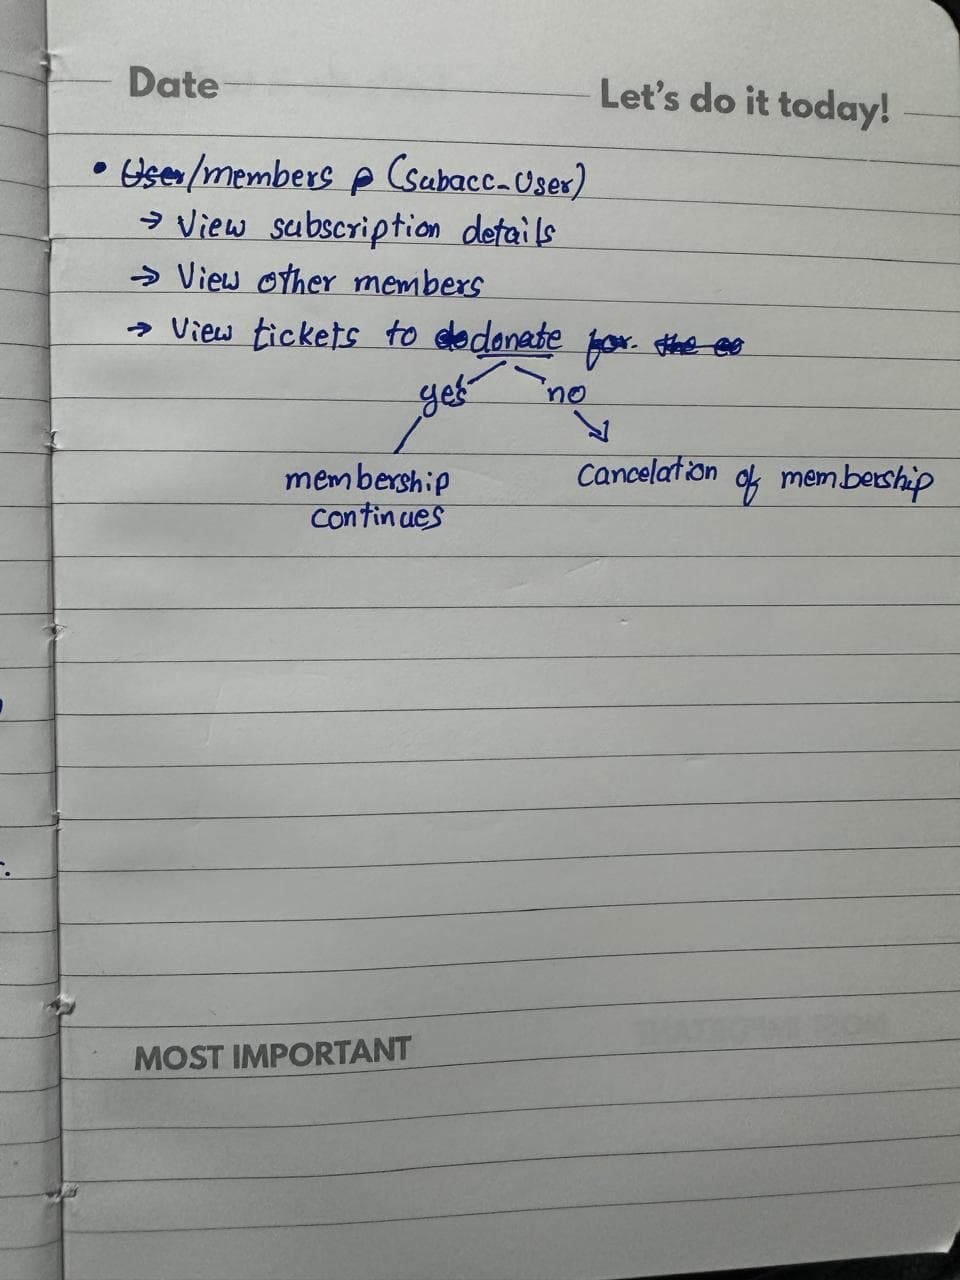 Date Let's do it today!
• User/members (subacc-User)
→ View subscription details
→ View other members
→ View tickets to donate for the
yes no
membership cancelation of membership
continues
MOST IMPORTANT